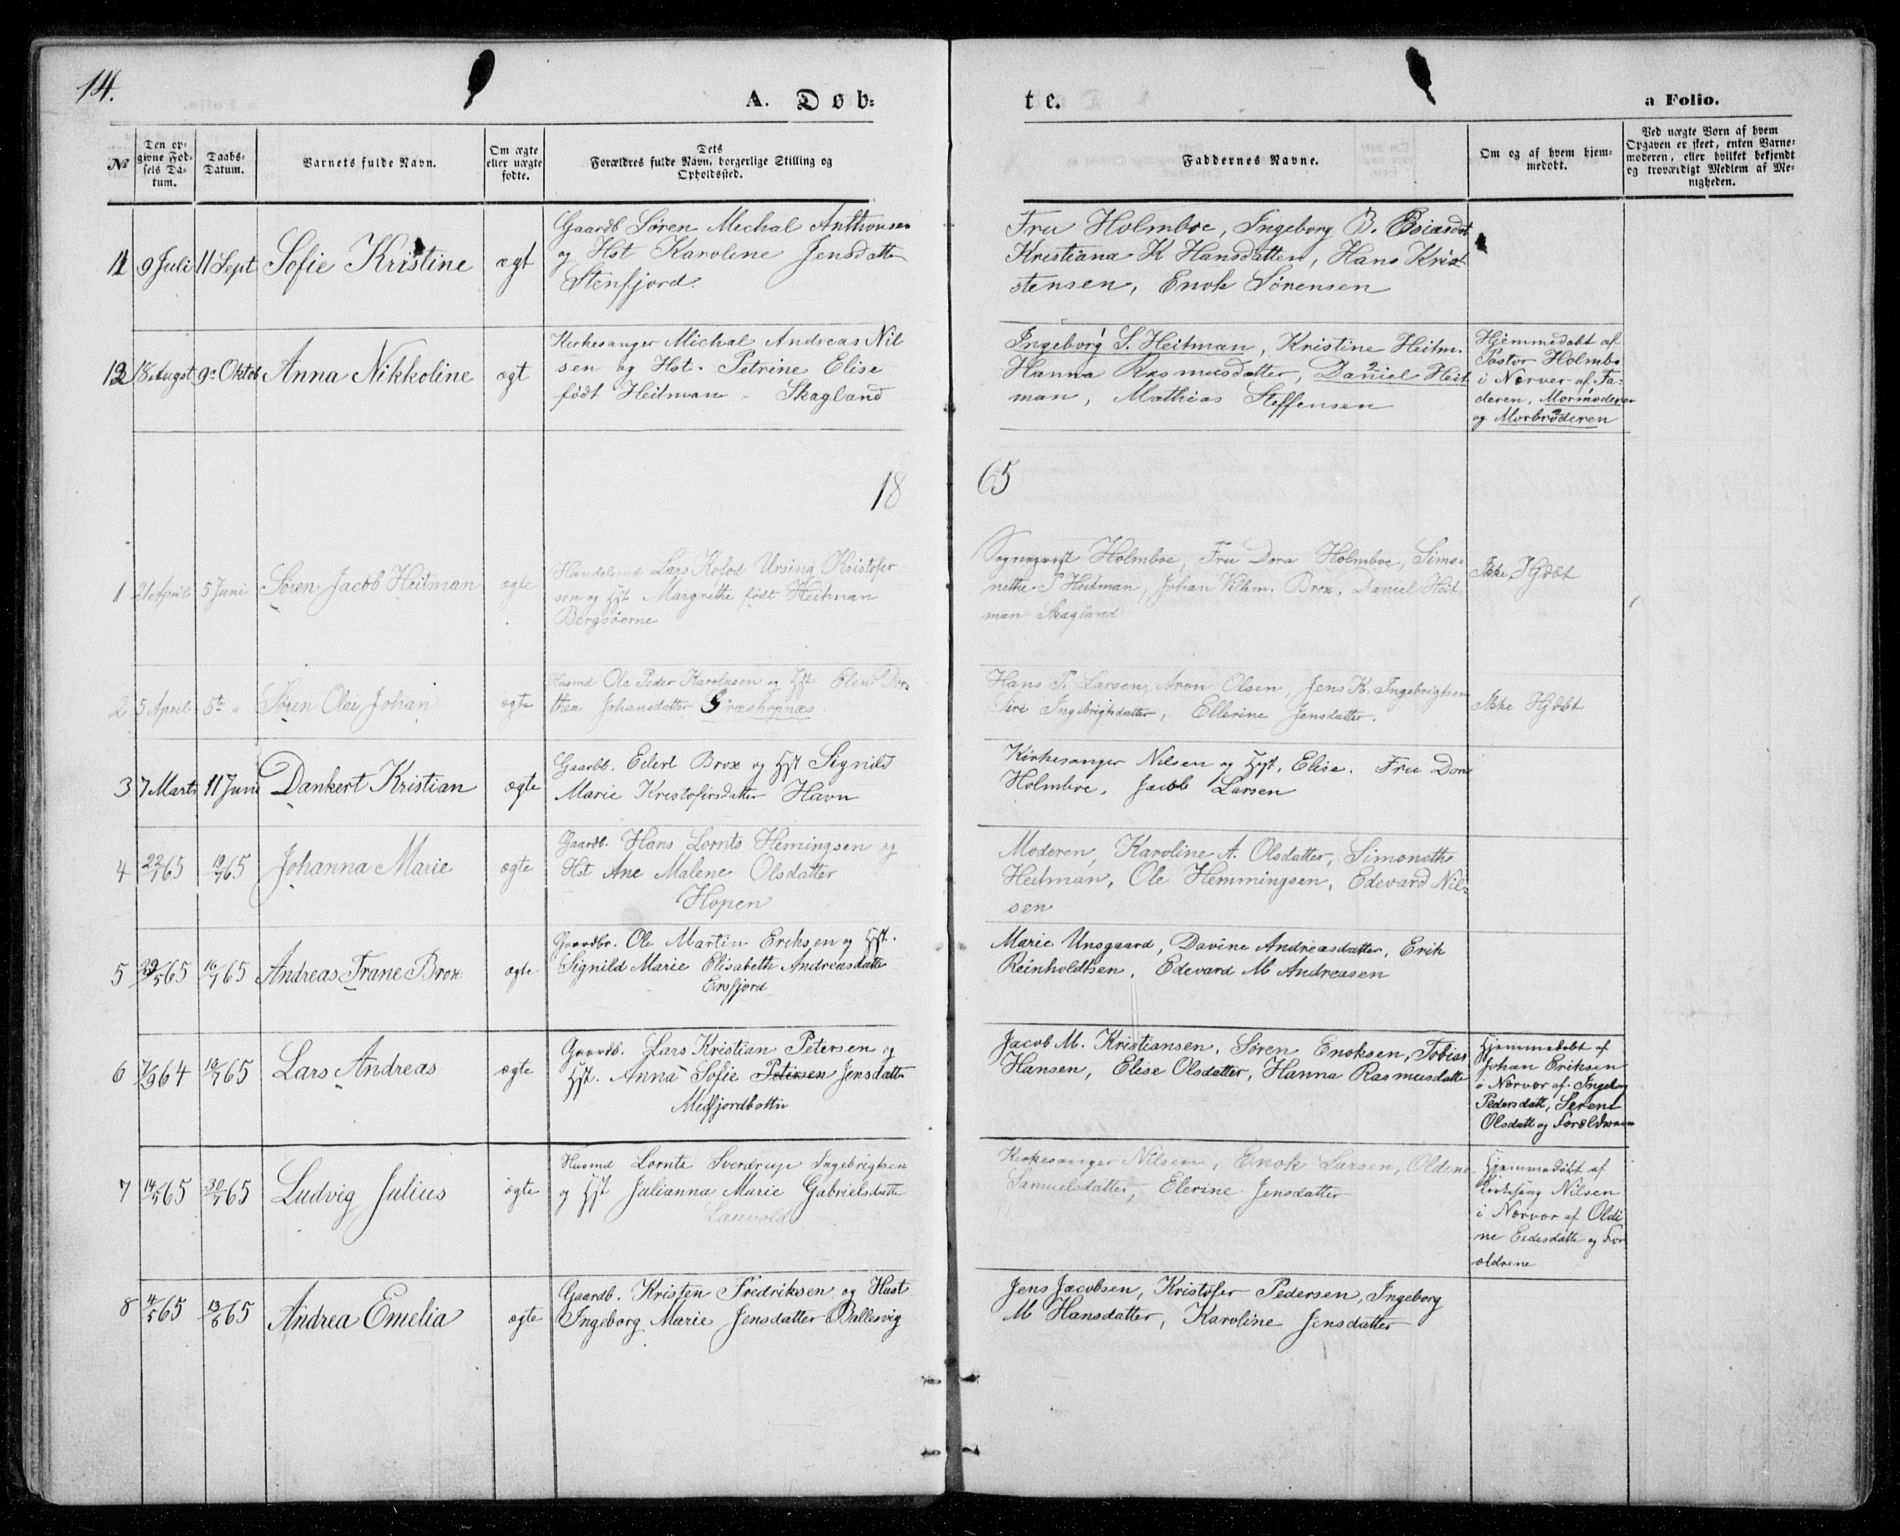 14.
A. Døb-
te.
a Folio.
No
Den op-
givne Fød-
sels Da-
tum.
Daabs-
Datum.
Barnets fulde Navn.
Om ægte
eller uægte
fødte.
Dets
Forældres fulde Navn, borgerlige Stilling og
Opholdssted.
Faddernes Navne.
Om og af hvem hjem-
medøbt.
Ved uægte Børn af hvem
Opgaven er skeet, enten Barne-
moderen, eller hvilket bekjendt
og troværdigt Medlem af Me-
nigheden.
11 9 Juli 11 Sept Sofie Kristine ægt
Gaardb Søren Michal Anthonsen
og Hst Karoline Jensdatter
Stenfjord.
Fru Holmboe, Ingeborg B.
Kristiana K Hansdatter, Hans Kris-
stensen, Enok Sørensen
12 18 Augst 9e Oktob Anna Nikkoline ægt
Kirkesanger Michal Andreas Nil
sen og Hst. Petrine Elise
født Heitman - Skagland
Ingeborg S. Heitman, Kristine Heitm.
Hanna Rasmusdatter, Daniel Heit
man, Mathias Steffensen
Hjemmedøbt af
Pastor Holmbo
i Nærver af Fa-
deren, Mormoderen
og Morbroderen
18 65
1 5 Juni Søren Jacob Heitman ægte
Handelsmd Lars Kofod Ursing Kristofer
sen og Hst Margrethe født Heitman
Bergsøerne
Sogneprest Holmboe, Fru Dora Holmboe, Simo-
nethe P Heitman, Johan Vilhm. Brox, Daniel Heit
man Skagland
Ikke Hjdbt
2 5 April 5te " Søren Olai Johan ægte
Husmd Ole Peder Karolusen og Hst Elen Dor-
thea Johansdatter Græshopnæs.
Hans P. Larsen, Aron Olsen, Jens K. Ingebrigtsen
Siri Ingebrigtsdatter, Ellerine Jensdatter.
Ikke Hjdbt
3 7 Marts 11 Juni Dankert Kristian ægte
Gaardb. Eilert Brox og Hst Signild
Marie Kristofersdatter Havn
Kirkesanger Nilsen og Hst, Elise. Fru Dora
Holmboe, Jacob Larsen
4 22/1 65 /7 65 Johanna Marie ægte
Gaardb. Hans Lornts Hemingsen og
Hst Ane Malene Olsdatter
Hopen
Moderen, Karoline A. Olsdatter, Simoneth
Heitman, Ole Hemmingsen, Edevard Nil-
sen
5 29/5 65 16/7 65 Andreas Frane Brox ægte
Gaardbr. Ole Martin Eriksen og Hst.
Signild Marie Elisabeth Andreasdatter
Ersfjord
Marie Unsgaard, Davine Andreasdatter, Erik
Reinholdtsen, Edevard M Andreasen
6 7/9 64 /7 65 Lars Andreas ægte
Gaardb. Lars Kristian Petersen og
Hst. Anna Sofie Petersen Jensdatt
Medfjordbotn
Jacob M. Kristiansen, Søren Enoksen, Tobias
Hansen, Elise Olsdatter, Hanna Rasmusdatter
Hjemmedøbt af
Johan Eriksen
i Nærvær af Ingeborg
Pedersdatt, Serene
Olsdatt og Forældrene
7 14/5 65 30/7 65 Ludvig Julius ægte
Husmd Lornts Sverdrup Ingebrigtsen
og Hst Julianna Marie Gabrielsdatte
Kirkesanger Nilsen, Enok Larsen, Oldine
Samuelsdatter, Elerine Jensdatter
Hjemmedøbt af
Kirkesang Nilsen
i Nærvær af Oldi
ne og For
ældrene
8 4/5 65 13/8 65 Andrea Emelia ægte
Gaardb. Kristen Fredriksen og Hust
Ingeborg Marie Jensdatter Ballesvig
Jens Jacobsen, Kristofer Pedersen, Ingeborg
M Hansdatter, Karoline Jensdatter